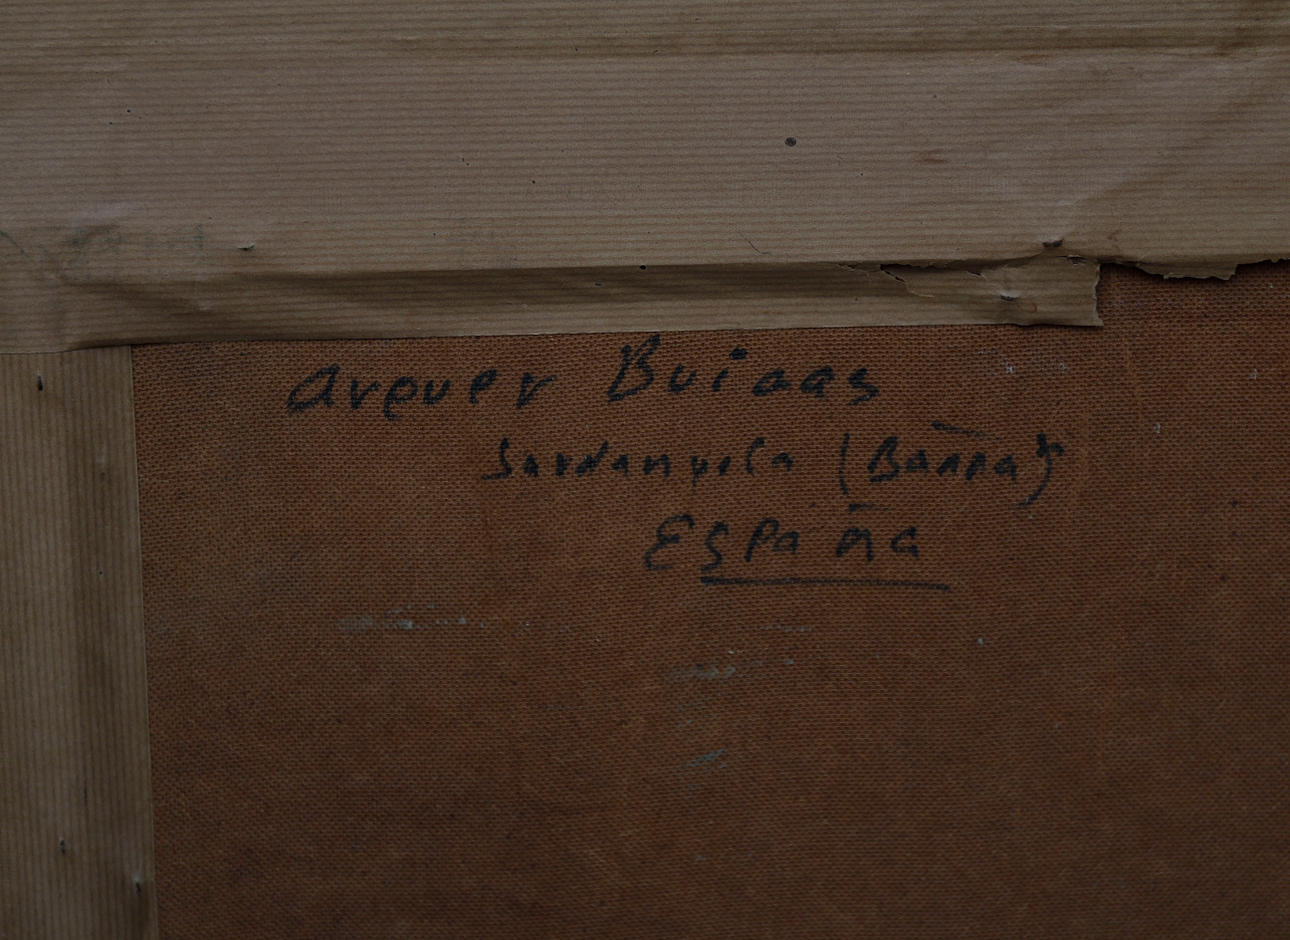 Arquer Buigas
Sardanyola (Barna)
España